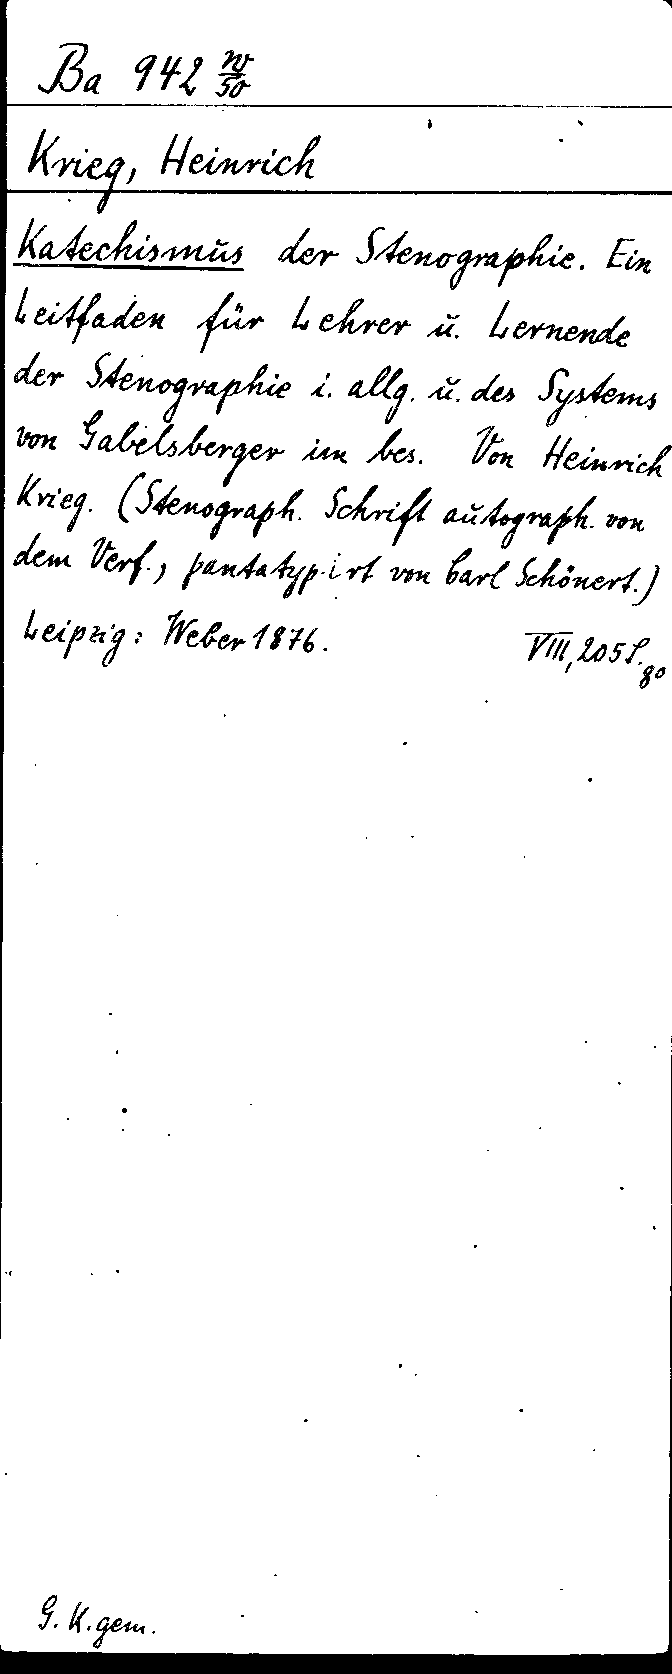 Ba 942 n/50
Krieg, Heinrich
Katechismus der Stenographie. Ein
Leitfaden für Lehrer u. Lernende
der Stenographie i. allg. u. des Systems
von Gabelsberger im bes. Von Heinrich
Krieg. (Stenograph. Schrift autograph. von
dem Verf., pantatypirt von Carl Schönert.)
Leipzig: Weber 1876. VIII, 205 S.
8°
G. K. gem.